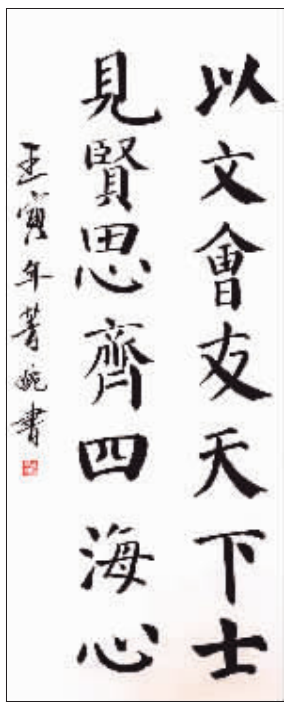 以文會友天下士
見賢思齊四海心
壬寅年菁婉書